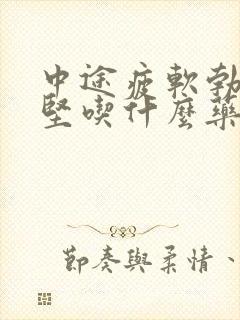 中途疲軟勃
堅喫什麼藥
節奏與柔情、